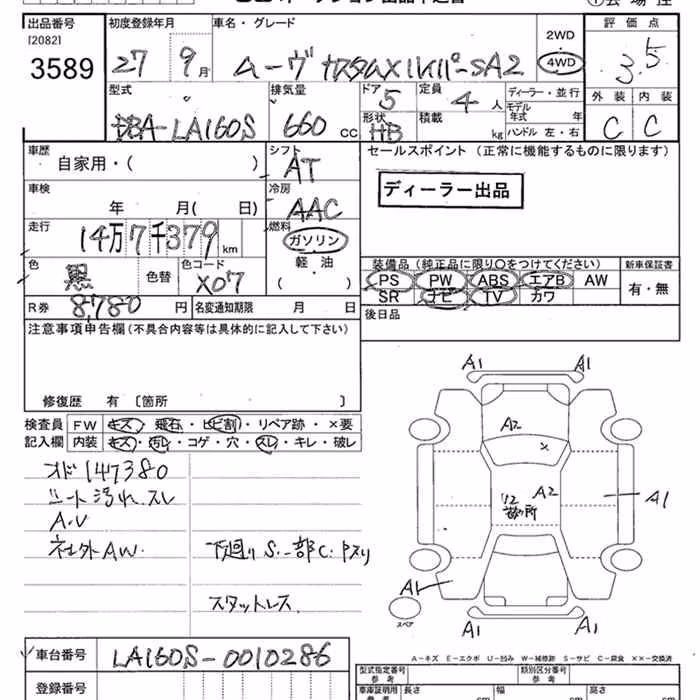 出品番号 初度登録年月 車名・グレード 評価点
[2082]
3589 27年 9月 ムーヴ カスタムXハイパーSA2 2WD 4WD 3.5
型式 排気量 ドア 定員 ディーラー・並行 外装 内装
DBA-LA160S 660 cc 5 4人 モデル年式 年 C C
形状 HB 積載 kg ハンドル 左・右
車歴 シフト セールスポイント (正常に機能するものに限ります)
自家用・( ) AT
ディーラー出品
車検 冷房
年 月( 日) AAC
走行 燃料
14万7千379km ガソリン
軽・油
( )
色 色替 色コード 装備品(純正品に限り○をつけてください) 新車保証書
黒 X07 PS PW ABS エアB AW 有・無
SR ナビ TV カワ
R券 8,780円 名変通知期限 月 日 後日品
注意事項申告欄(不具合内容等は具体的に記入して下さい)
修復歴 有 〔箇所
検査員 FW キズ・飛石・ヒビ割・リペア跡・×要
記入欄 内装 キズ・汚れ・コゲ・穴・スレ・キレ・破レ
オド147380
シート汚れ スレ
A.U
社外AW. 下廻りS.一部C.Pスリ
スタットレス
A1 A1
A2
A2
A1
A1
スペア
A1 A1
A-キズ E-エクボ U-凹み W-補修跡 S-サビ C-腐食 ××-交換済
車台番号 LA160S-0010286 型式指定番号 類別区分番号
参考 参考
登録番号 車庫証明用 長さ 幅 高さ
参考 cm cm cm